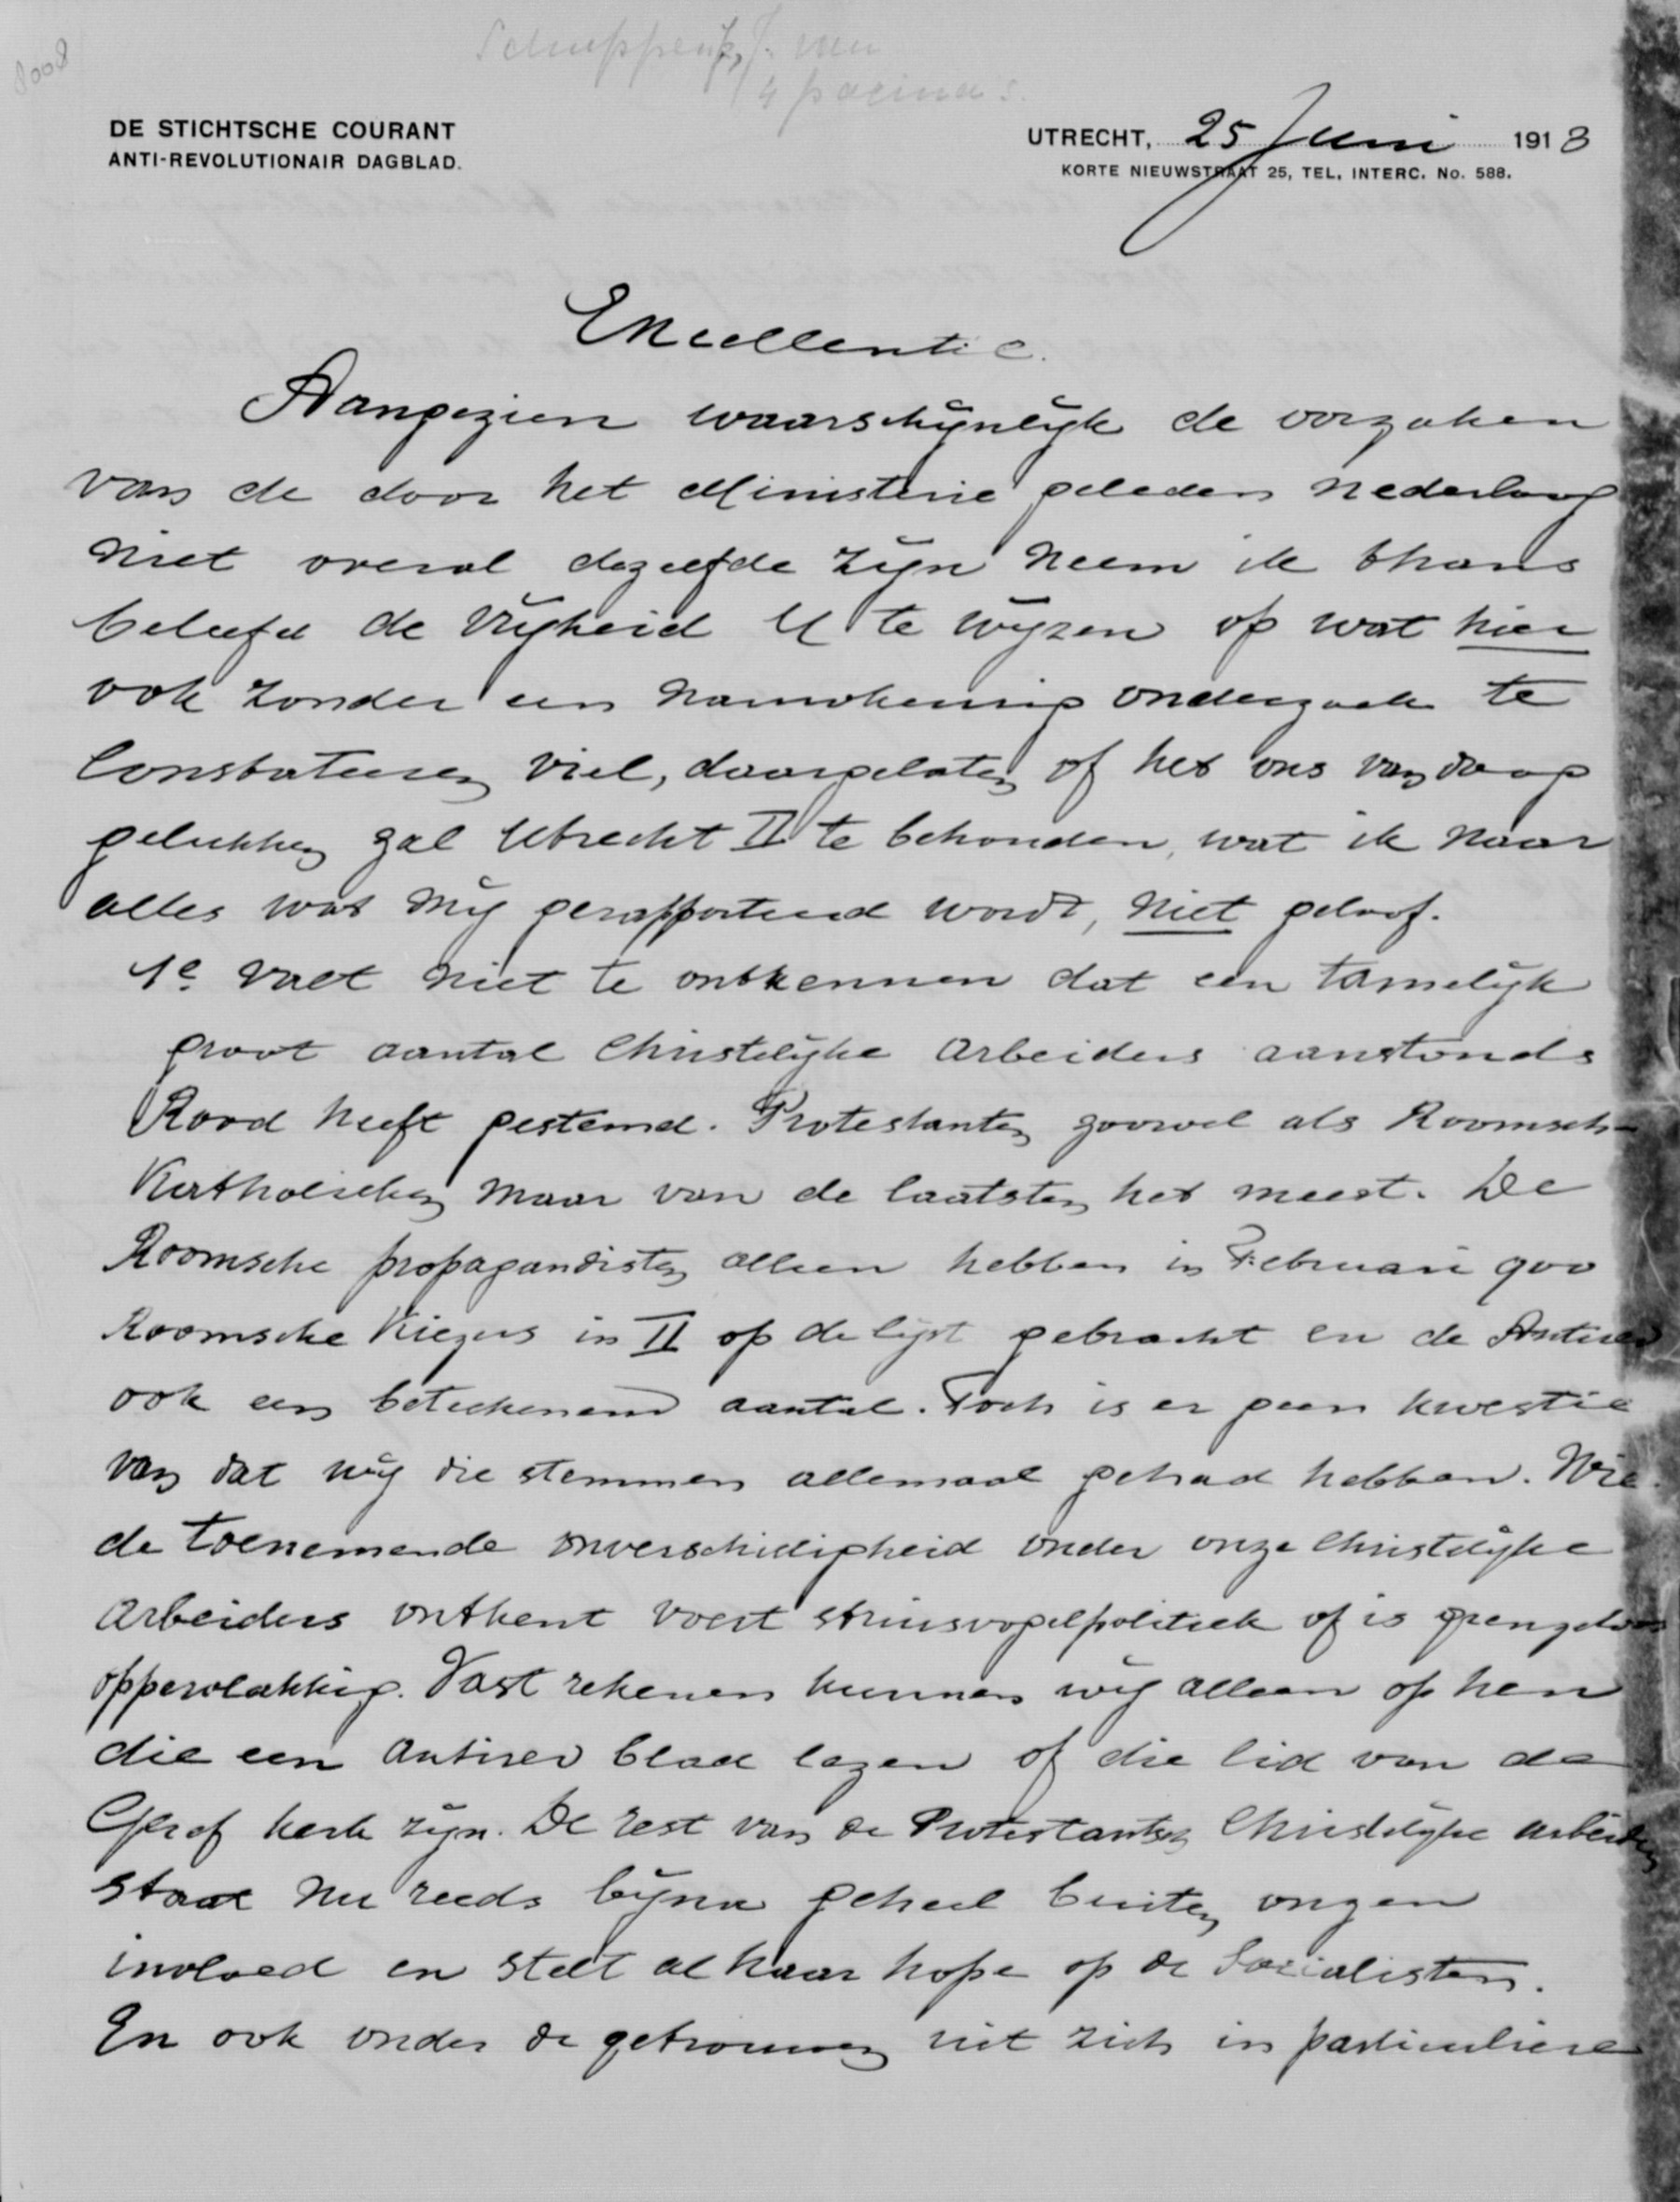 8008
4 pagina's.
DE STICHTSCHE COURANT
ANTI-REVOLUTIONAIR DAGBLAD.
UTRECHT, 25 Juni 1913
KORTE NIEUWSTRAAT 25, TEL. INTERC. No. 588.
Excellentie.
Aangezien waarschijnlijk de oorzaken
van de door het Ministerie geleden nederlaag
niet overal dezelfde zijn neem ik thans
beleefd de vrijheid U te wijzen op wat hier
ook zonder een nauwkeurig onderzoek te
constateeren viel, daargelaten of het ons vandaag
gelukken zal Utrecht II te behouden, wat ik naar
alles wat mij gerapporteerd wordt, niet geloof.
1e valt niet te ontkennen dat een tamelijk
groot aantal Christelijke arbeiders aanstonds
Rood heeft gestemd. Protestanten zoowel als Roomsch-
Katholieken maar van de laatsten het meest. De
Roomsche propagandisten alleen hebben in Februari 900
Roomsche Kiezers in II op de lijst gebracht en de Antirev
ook een beteekenend aantal. Toch is er geen kwestie
van dat wij die stemmen allemaal gehad hebben. Wie
de toenemende onverschilligheid onder onze Christelijke
arbeiders ontkent voert struisvogelpolitiek of is grenzeloos
oppervlakkig. Vast rekenen kunnen wij alleen op hen
die een antirev blad lezen of die lid van de
Geref kerk zijn. De rest van de Protestantsch Christelijke arbeiders
staat nu reeds bijna geheel buiten onzen
invloed en stelt al haar hope op de Socialisten.
En ook onder de getrouwen uit zich in particuliere